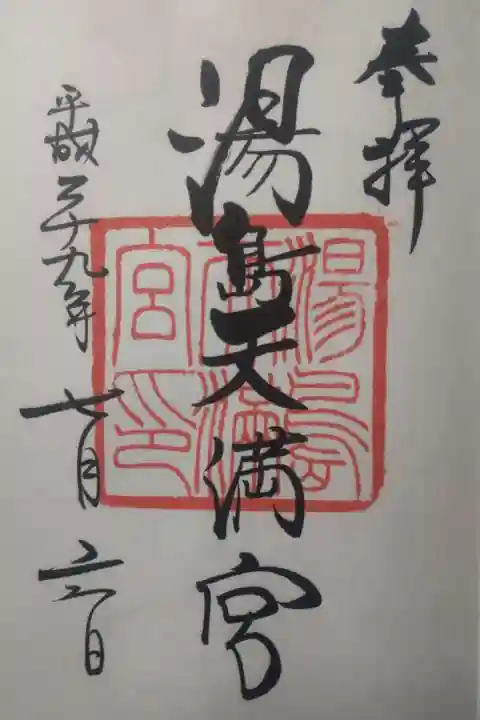 奉拝
湯島天満宮
平成二十九年
七月
日
湯島
天満
宮印